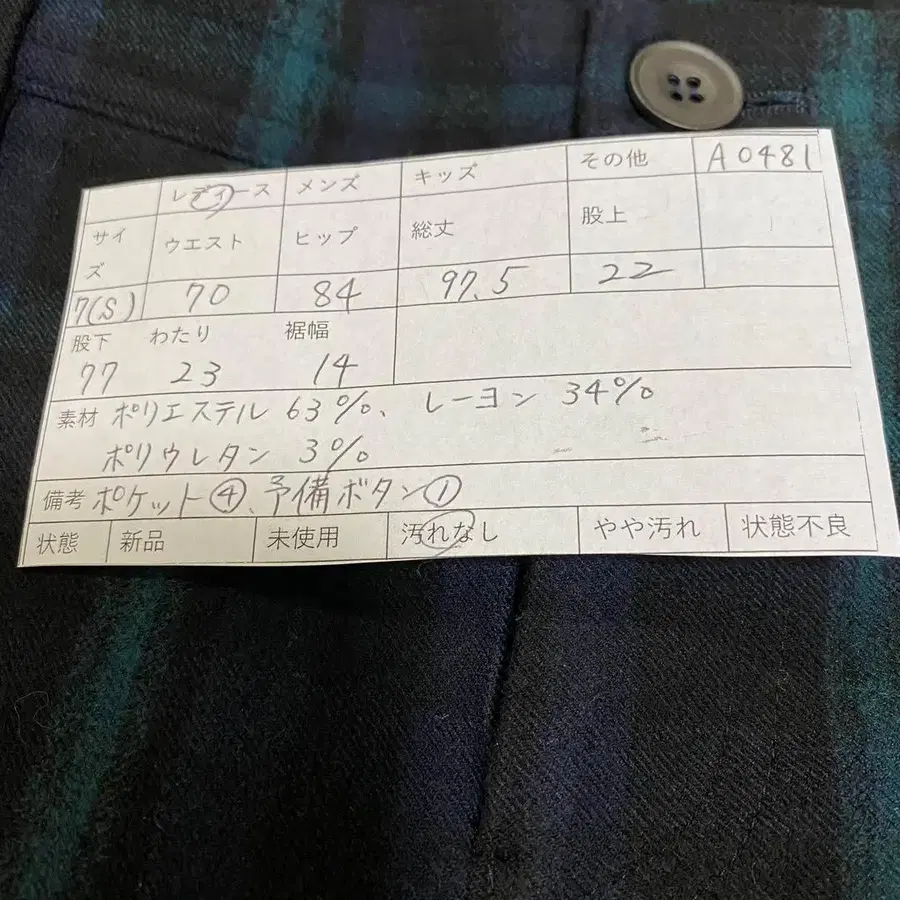 レディース メンズ キッズ その他 A0481
サイズ ウエスト ヒップ 総丈 股上
7(S) 70 84 97.5 22
股下 わたり 裾幅
77 23 14
素材 ポリエステル 63%、レーヨン 34%
ポリウレタン 3%
備考 ポケット④、予備ボタン①
状態 新品 未使用 汚れなし やや汚れ 状態不良